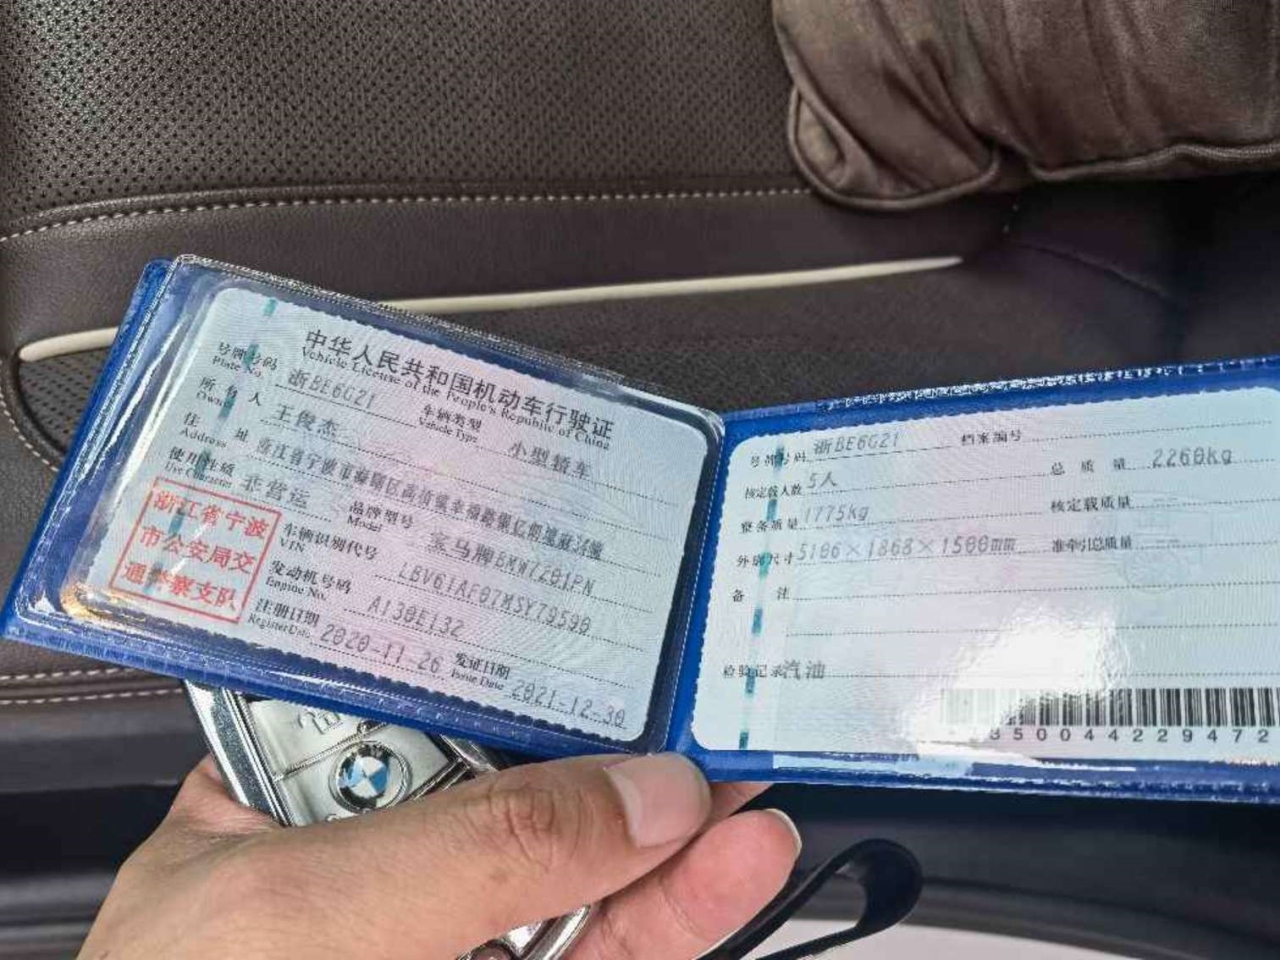 中华人民共和国机动车行驶证
Vehicle License of the People's Republic of China
号牌号码 浙BE6G21 车辆类型 小型轿车
Plate No. Vehicle Type
所有人 王俊杰
Owner
住址 浙江省宁波市海曙区高桥镇
Address
使用性质 非营运 品牌型号 宝马牌BMW7201PN
Use Character Model
浙江省宁波
市公安局交
通警察支队
车辆识别代号 LBV61AF07MSY79590
VIN
发动机号码 A130E132
Engine No.
注册日期 2020-11-26 发证日期 2021-12-30
Register Date Issue Date
号牌号码 浙BE6G21 档案编号
核定载人数 5人 总质量 2260kg
整备质量 1775kg 核定载质量
外廓尺寸 5106×1868×1500mm 准牵引总质量
备注
检验记录 汽油
3500044229472